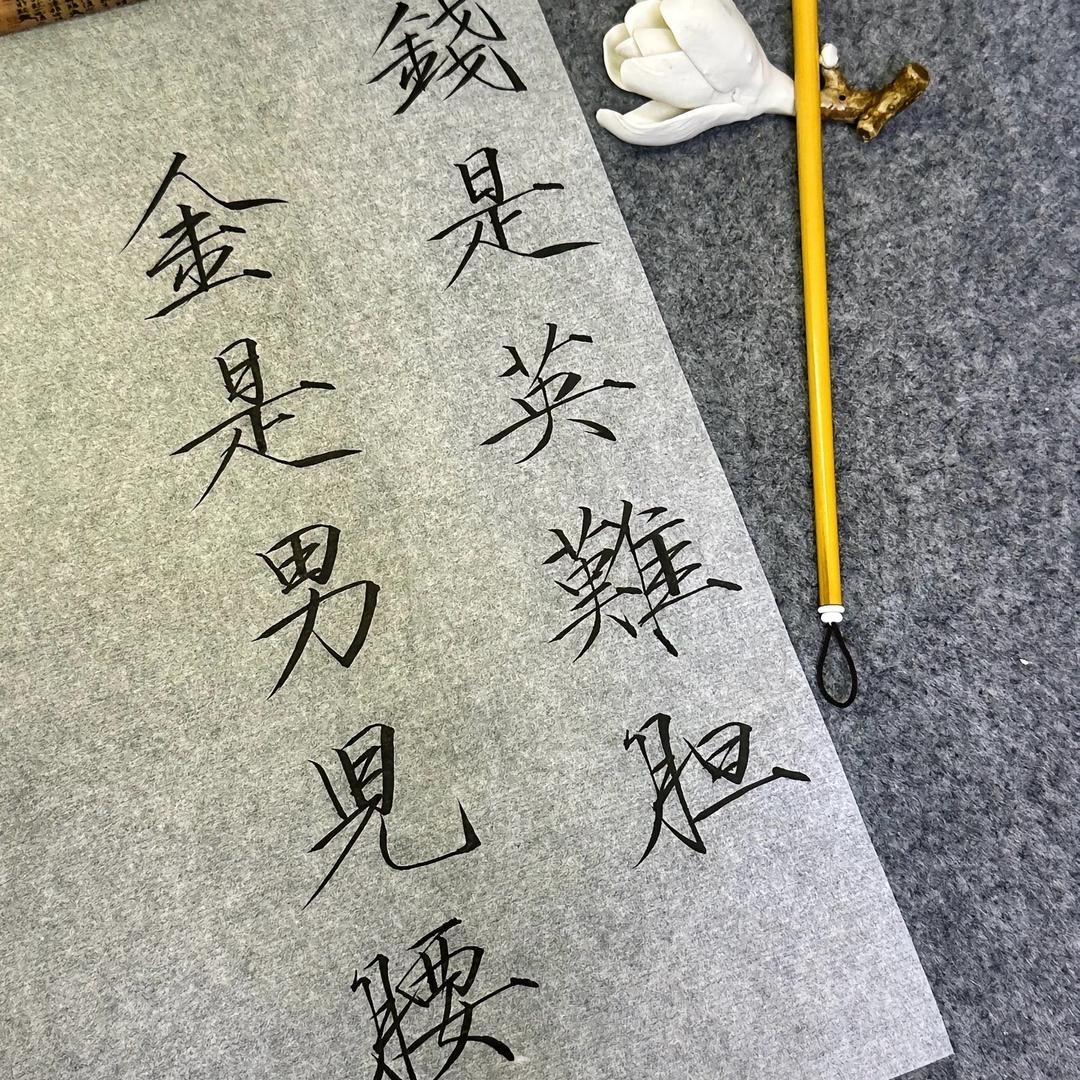 錢是英難胆
金是男兒腰